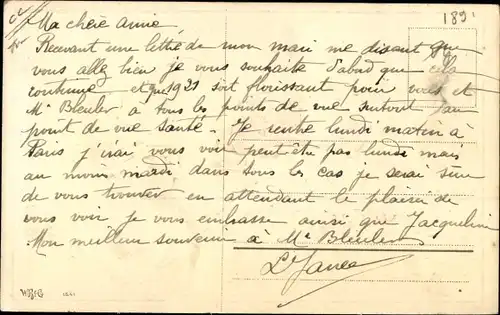 Ma chère amie
Recevant une lettre de mon mari me disant que
vous allez bien je vous souhaite d'abord que cela
continue et que 1921 soit florissant pour vous et
Mr Bleuler a tous les points de vue surtout au
point de vue santé. Je rentre lundi matin à
Paris j'irai vous voir peut être pas lundi mais
au moins mardi dans tous les cas je serai sûre
de vous trouver en attendant le plaisir de
vous voir je vous embrasse ainsi que Jacqueline
Mon meilleur souvenir à Mr Bleuler
189